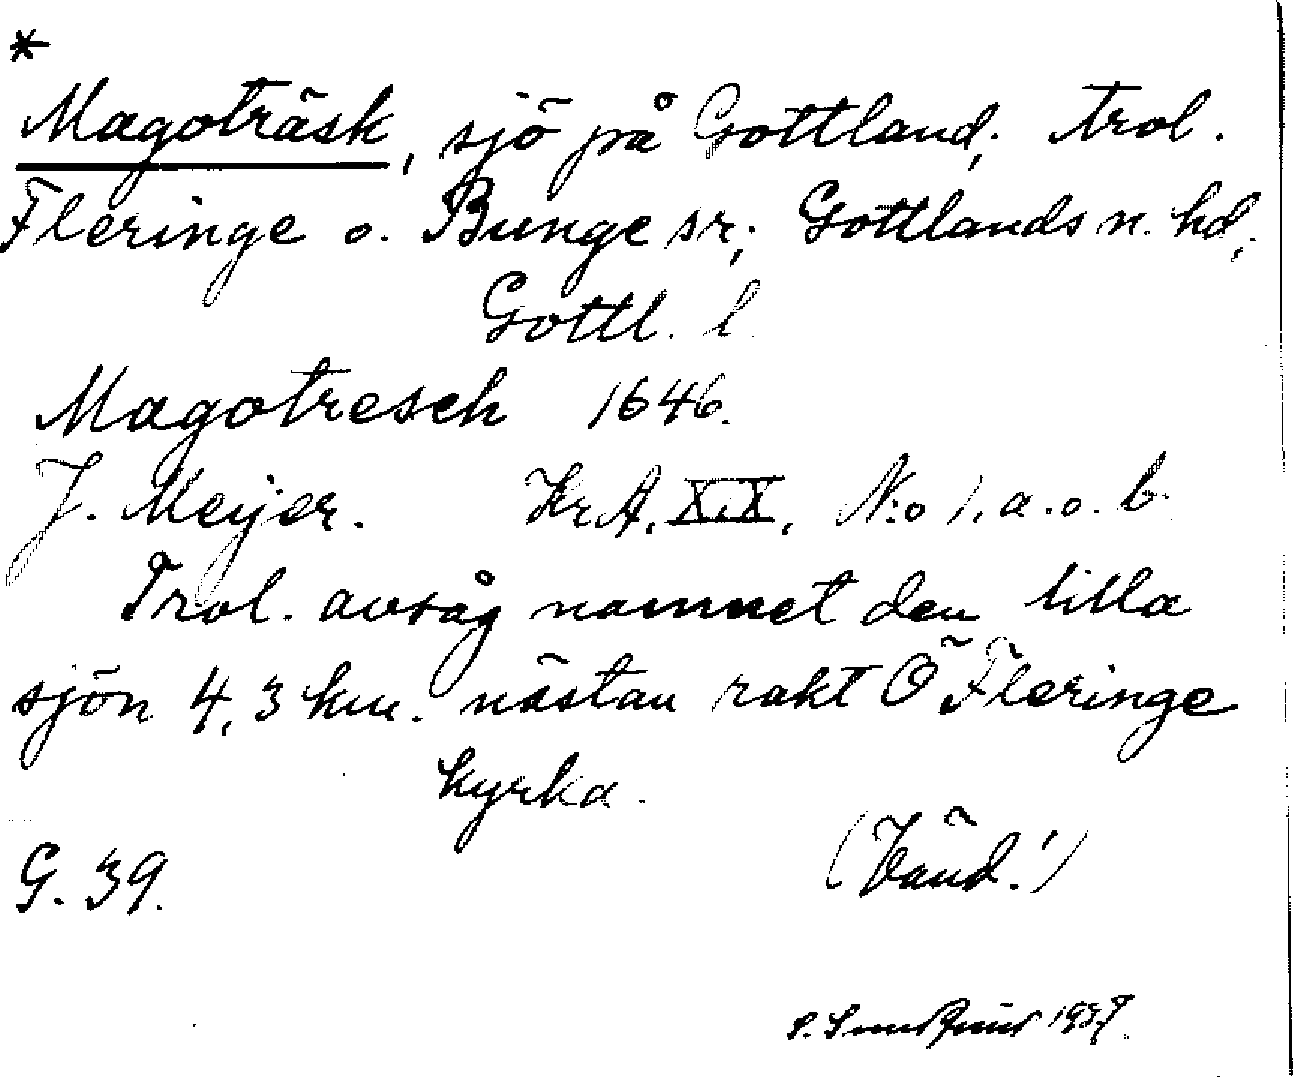 *
Magoträsk, sjö på Gottland; trol.
Fleringe o. Bunge sr; Gottlands n. hd;
Gottl. l.
Magotresch 1646.
J. Meijer. KrA. XIX, N:o 1. a. o. b.
Trol. avsåg namnet den lilla
sjön 4,3 km. nästan rakt Ö Fleringe
kyrka.
(Vänd!)
G. 39.
S. 1937.